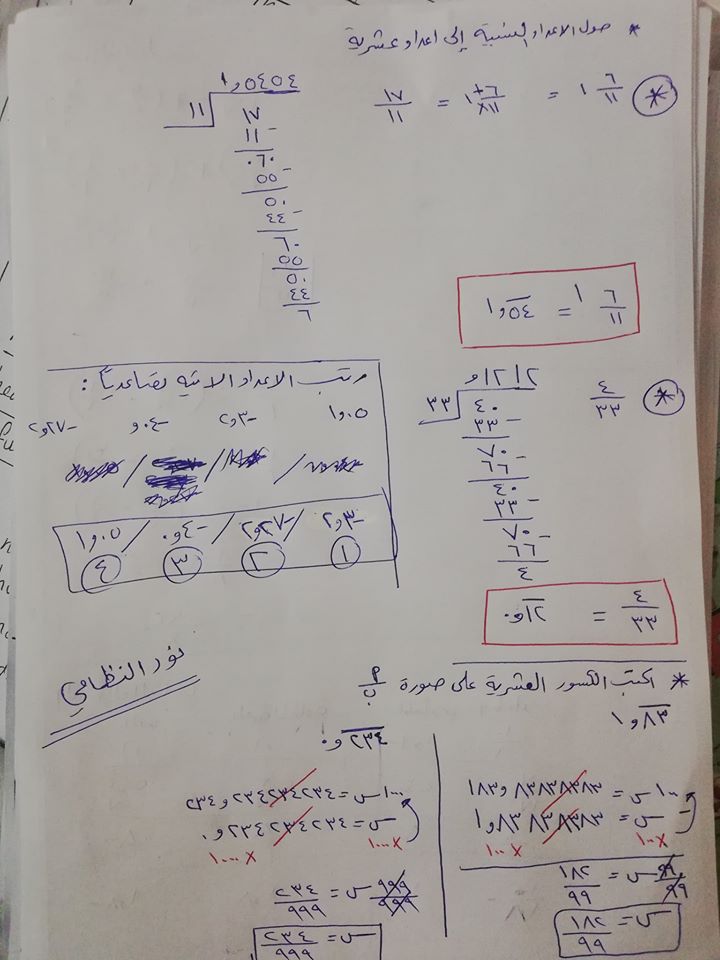 * حول الاعداد النسبية إلى اعداد عشرية
* ١ ٦/١١ = ١+٦/١١× = ١٧/١١
١١
١,٥٤٥٤
١٧
- ١١
٠٦٠
- ٥٥
٥٠
- ٤٤
٦٠
٥٥
٥٠
٤٤
٦
١ ٦/١١ = ١,٥٤
* ٤/٣٣
٣٣
,١٢١٢
٤٠
- ٣٣
٧٠
- ٦٦
٤٠
- ٣٣
٧٠
- ٦٦
٤
٤/٣٣ = ٠,١٢
مرتب الاعداد الاتية تصاعدياً :
١,٠٥ -٢,٣ -٠,٤ -٢,٢٧
-٢,٣ / -٢,٢٧ / -٠,٤ / ١,٠٥
١ ٢ ٣ ٤
نور النظامي
* اكتب الكسور العشرية على صورة أ/ب
١,٨٣
١٠٠ س = ١٨٣,٨٣٨٣٨٣٨٣
- س = ١,٨٣٨٣٨٣٨٣
×١٠٠ ×١٠٠
٩٩/٩٩ س = ١٨٢/٩٩
س = ١٨٢/٩٩
٠,٢٣٤
١٠٠٠ س = ٢٣٤,٢٣٤٢٣٤٢٣٤
س = ٠,٢٣٤٢٣٤٢٣٤
×١٠٠٠ ×١٠٠٠
٩٩٩/٩٩٩ س = ٢٣٤/٩٩٩
س = ٢٣٤/٩٩٩